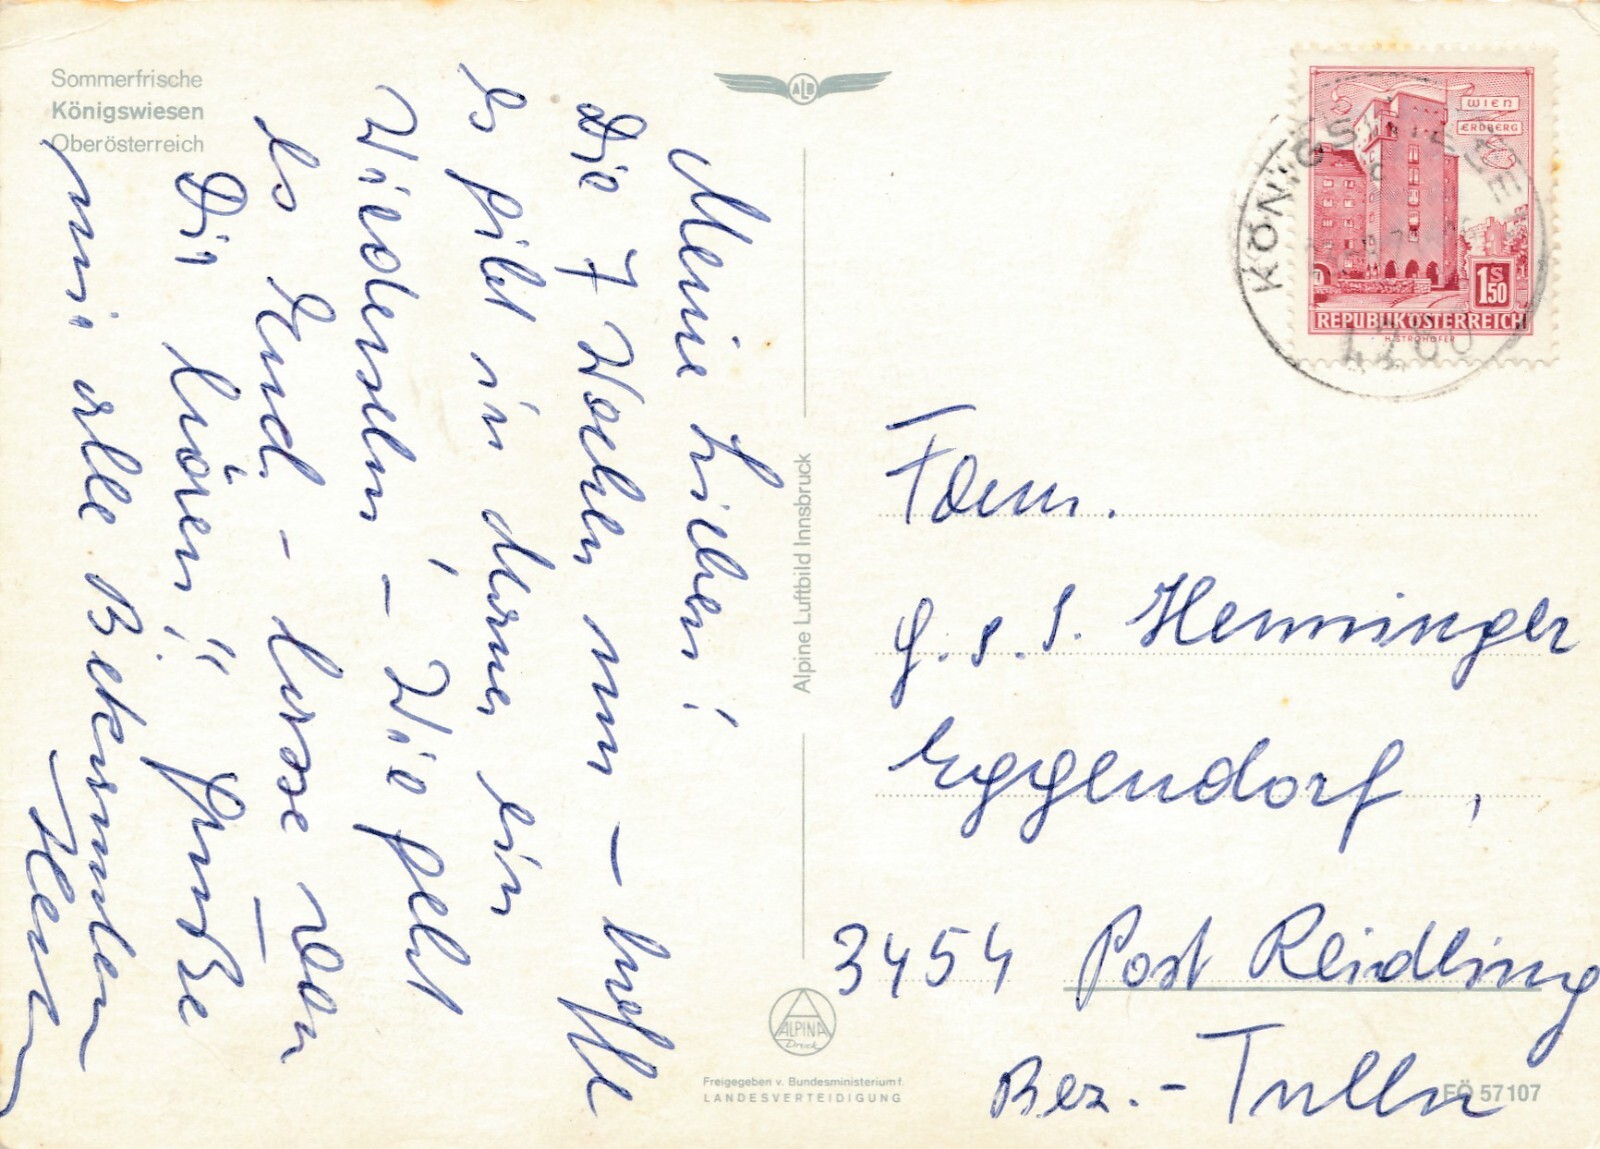 Sommerfrische
Königswiesen
Oberösterreich
ALB
Meine Lieben!
Die 7 Wochen nun – hoffe
es gibt in dieser ein
Wiedersehn! – Wie geht
es Hund – lasse von
Dir hören!! Grüße
mir alle Bekannten
Alpine Luftbild Innsbruck
ALPINA
Druck
Freigegeben v. Bundesministerium f.
LANDESVERTEIDIGUNG
WIEN
ERDBERG
1 S 50
REPUBLIK ÖSTERREICH
H. STROHOFER
KÖNIGSWIESEN
Fam.
Henninger
Eggendorf,
3454 Post Reidling
Bez.- Tulln
FÖ 57107